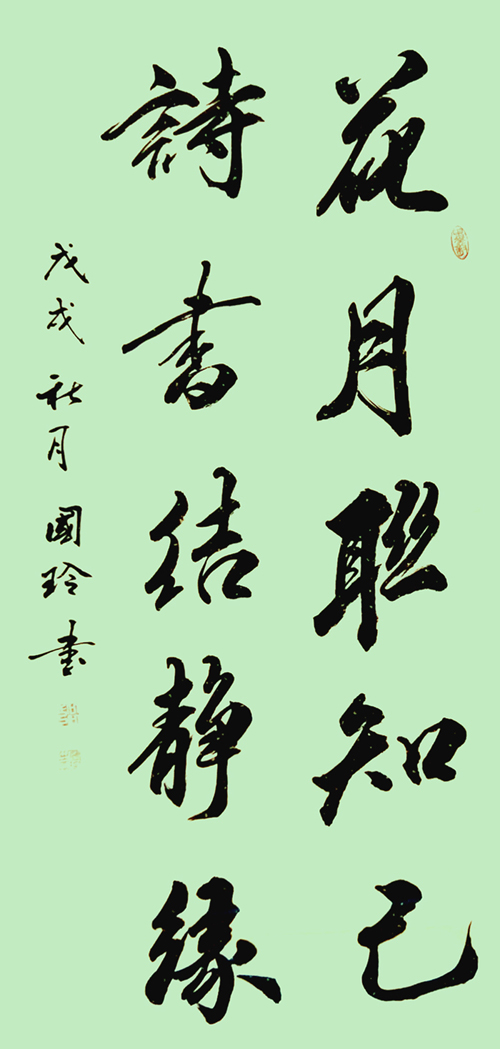 花月聯知己
詩書结静緣
戊戌秋月國玲书